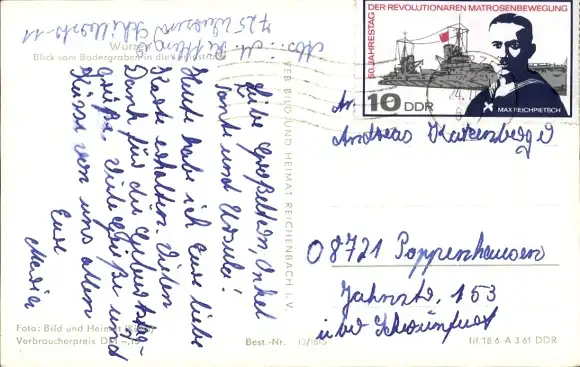 Abs.: M.
725 Wurzen Schillerstr. 11
Wurzen
Blick vom Badergraben in die
Liebe Großeltern, Onkel
Tante und Ursulei!
Heute habe ich Eure liebe
Karte erhalten. Vielen
Dank für die Geburtstags-
grüße. Viele Grüße und
Küsse von uns allen
Eure
Maria
VEB BILD UND HEIMAT REICHENBACH i. V.
50. JAHRESTAG DER REVOLUTIONÄREN MATROSENBEWEGUNG
10 DDR
MAX REICHPIETSCH
Andreas Katzenberger
08721 Poppenhausen
Jahnstr. 153
über Schweinfurt
Foto: Bild und Heimat
Verbraucherpreis DM -,15
Best.-Nr.
III/18/6 A 3/61 DDR